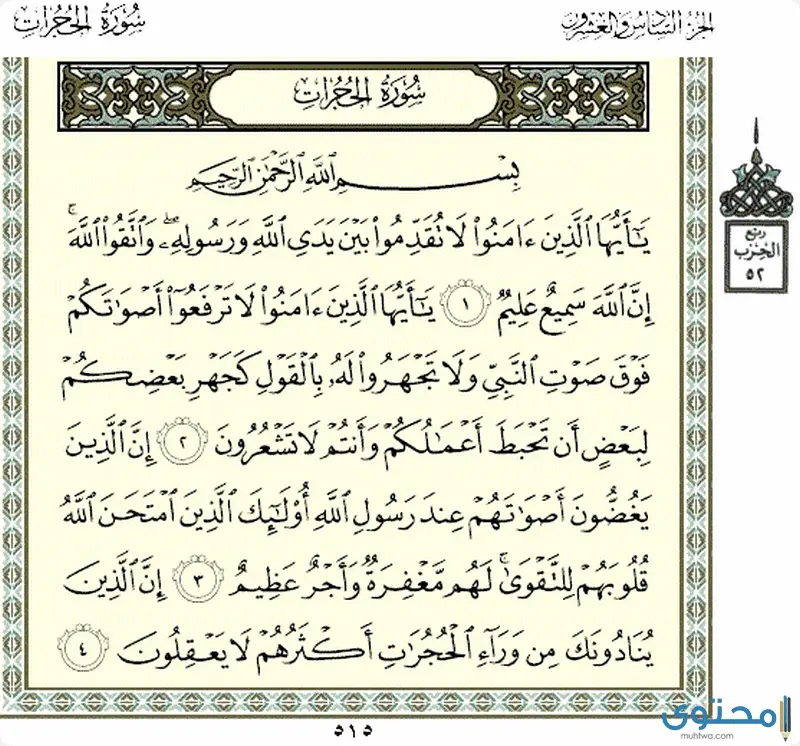 الجزء السادس والعشرون
سُورَةُ الحُجُرَاتِ
سُورَةُ الحُجُرَاتِ
بِسْمِ اللَّهِ الرَّحْمَٰنِ الرَّحِيمِ
يَٰٓأَيُّهَا ٱلَّذِينَ ءَامَنُوا۟ لَا تُقَدِّمُوا۟ بَيْنَ يَدَىِ ٱللَّهِ وَرَسُولِهِۦ ۖ وَٱتَّقُوا۟ ٱللَّهَ ۚ
إِنَّ ٱللَّهَ سَمِيعٌ عَلِيمٌ ١ يَٰٓأَيُّهَا ٱلَّذِينَ ءَامَنُوا۟ لَا تَرْفَعُوٓا۟ أَصْوَٰتَكُمْ
فَوْقَ صَوْتِ ٱلنَّبِىِّ وَلَا تَجْهَرُوا۟ لَهُۥ بِٱلْقَوْلِ كَجَهْرِ بَعْضِكُمْ
لِبَعْضٍ أَن تَحْبَطَ أَعْمَٰلُكُمْ وَأَنتُمْ لَا تَشْعُرُونَ ٢ إِنَّ ٱلَّذِينَ
يَغُضُّونَ أَصْوَٰتَهُمْ عِندَ رَسُولِ ٱللَّهِ أُو۟لَٰٓئِكَ ٱلَّذِينَ ٱمْتَحَنَ ٱللَّهُ
قُلُوبَهُمْ لِلتَّقْوَىٰ ۚ لَهُم مَّغْفِرَةٌ وَأَجْرٌ عَظِيمٌ ٣ إِنَّ ٱلَّذِينَ
يُنَادُونَكَ مِن وَرَآءِ ٱلْحُجُرَٰتِ أَكْثَرُهُمْ لَا يَعْقِلُونَ ٤
ربع
الحزب
٥٢
٥١٥
محتوى
muhtwa.com